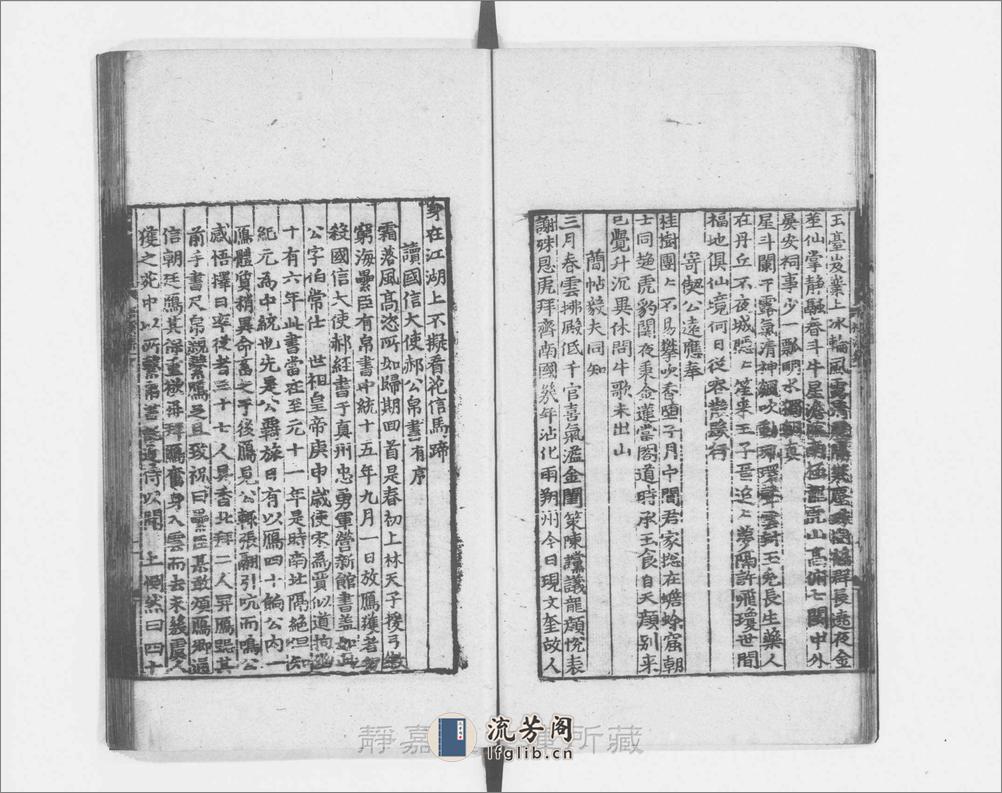 玉臺岌業上冰輪風露清
茎仙掌靜融春斗牛星澹
晏安祠事少一瓢明水獨朝真
星斗闌干露氣清神飆吹動
在丹丘不夜城愿上笙來王子晉追上夢隔許飛瓊世間
福地俱仙境何日從容散發行
寄偰公遠應奉
桂樹團上不易攀吹香墮子月中間君家捴在蟾蜍窟朝
士同趍虎豹關夜秉金蓮當閣道時承玉食自天顔別來
已覺升沉異休問牛歌未出山
蕳帖毅夫同知
三月春雲拂殿低千官喜氣溢金閨策陳讜議龍顔悅表
謝殊恩虎拜齊南國幾年沾化雨朔州今日現文奎故人
身在江湖上不擬看花信馬蹄
讀國信大使郝公帛書有序
霜落風高恣所如歸期回首是春初上林天子援弓繳
窮海纍臣有帛書中統十五年九月一日放鴈獲者勿
殺國信大使郝經書于真州忠勇軍營新館書蓋如此
公字伯常仕 世祖皇帝庚申歲使宋為賈似道拘
十有六年此書當在至元十一年是時南北隔絶但知
紀元為中統也先是公羈旅日有以鴈四十餉公內一
鴈體質稍異命畜之于後鴈見公輙張翮引吭而鳴公
感悟擇日率從者三十七人具香北拜二人舁鴈跽其
前手書尺帛親繫鴈足且致祝曰纍臣某敢煩鴈卿通
信朝廷鴈其保重欲再拜鴈奮身入雲而去未幾虞人
獲之苑中以所繫帛書 近侍以聞 上惻然曰四十
靜嘉 所藏
流芳阁
lfglib.cn